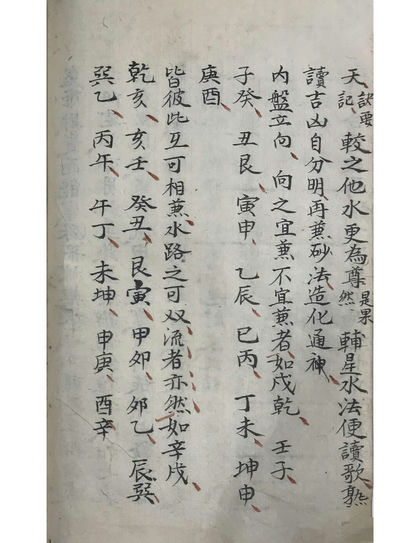 天訣要記較之他水更為尊是果然輔星水法便讀歌熟
讀吉凶自分明再兼砂法造化通神
內盤立向向之宜兼不宜兼者如戌乾 壬子
子癸 丑艮 寅申 乙辰 巳丙 丁未 坤申
庚酉
皆彼此互可相兼水路之可双流者亦然如辛戌
乾亥 亥壬 癸丑 艮寅 甲卯 卯乙 辰巽
巽乙 丙午 午丁 未坤 申庚 酉辛